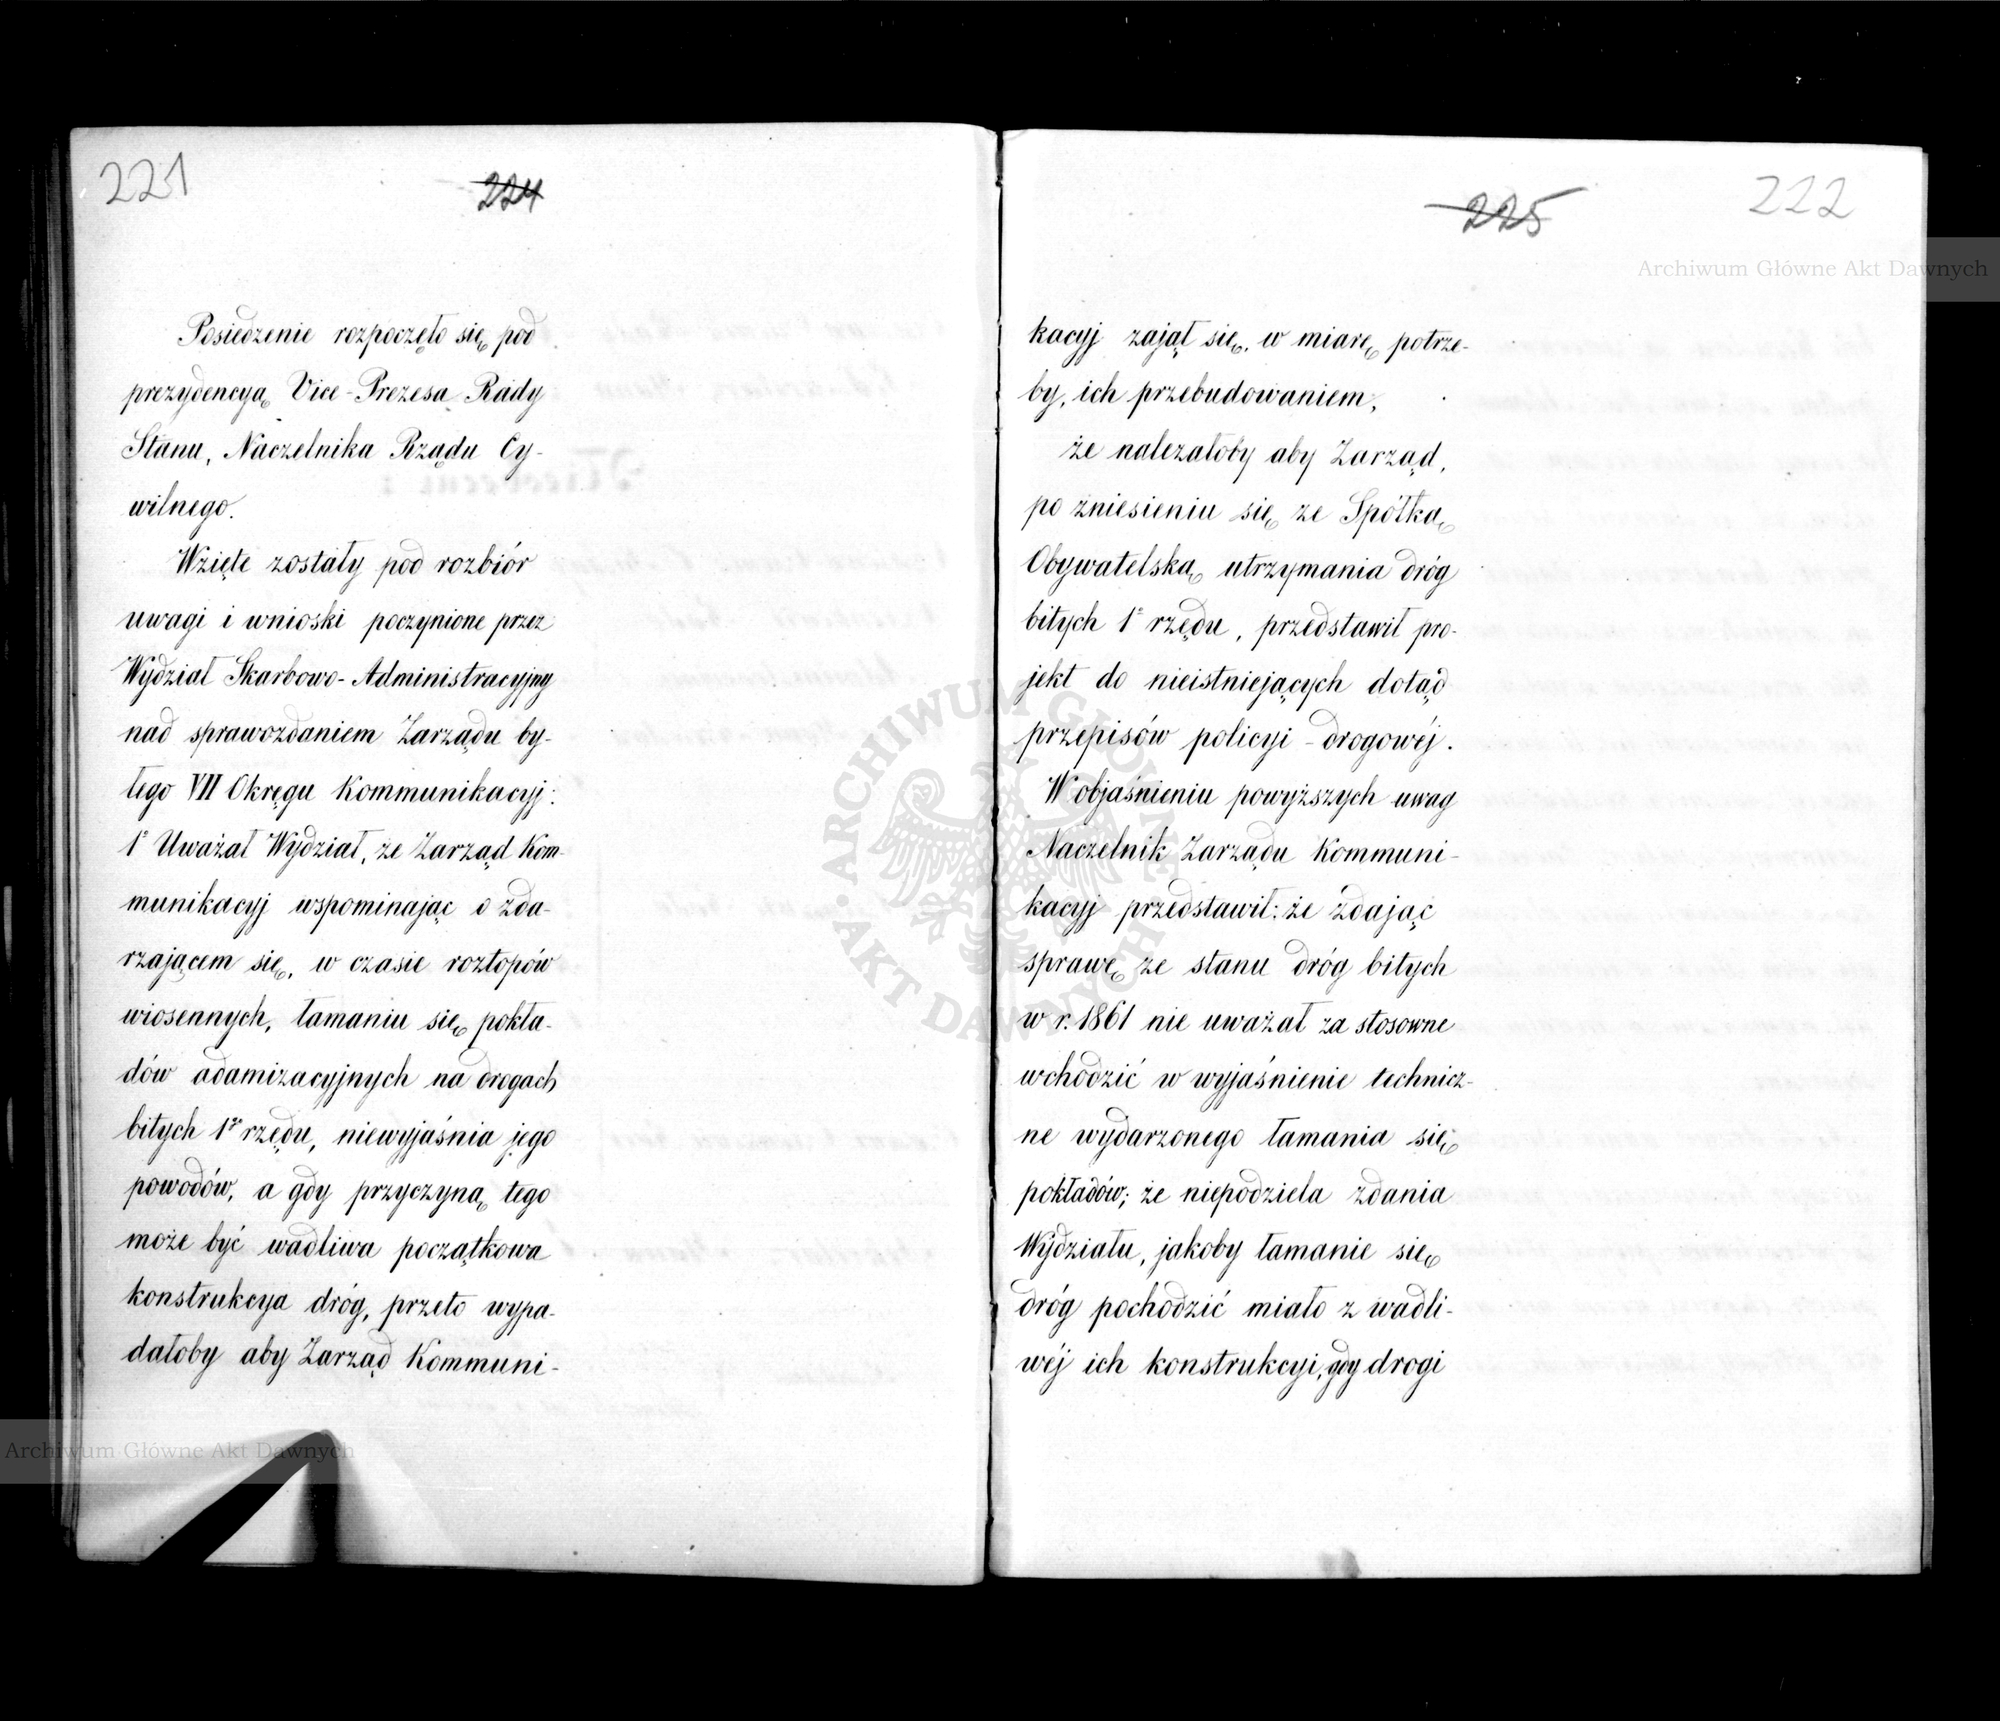 221
224
Posiedzenie rozpoczęło się pod
prezydencyą Vice-Prezesa Rady
Stanu, Naczelnika Rządu Cy-
wilnego.
Wzięte zostały pod rozbiór
uwagi i wnioski poczynione przez
Wydział Skarbowo-Administracyjny
nad sprawozdaniem Zarządu by-
łego VII Okręgu Kommunikacyj:
1° Uważał Wydział, że Zarząd Kom-
munikacyj wspominając o zda-
rzającem się, w czasie roztopów
wiosennych, łamaniu się pokła-
dów adamizacyjnych na drogach
bitych 1go rzędu, niewyjaśnia jego
powodów, a gdy przyczyną tego
może być wadliwa początkowa
konstrukcya dróg, przeto wypa-
dałoby aby Zarząd Kommuni-
222
225
kacyj zajął się, w miarę potrze-
by, ich przebudowaniem,
że należałoby aby Zarząd,
po zniesieniu się ze Spółką
Obywatelską utrzymania dróg
bitych 1° rzędu, przedstawił pro-
jekt do nieistniejących dotąd
przepisów policyi-drogowéj.
W objaśnieniu powyższych uwag
Naczelnik Zarządu Kommuni-
kacyj przedstawił: że zdając
sprawę ze stanu dróg bitych
w r. 1861 nie uważał za stosowne
wchodzić w wyjaśnienie technicz-
ne wydarzonego łamania się
pokładów; że niepodziela zdania
Wydziału, jakoby łamanie się
dróg pochodzić miało z wadli-
wéj ich konstrukcyi, gdy drogi
Archiwum Główne Akt Dawnych
ARCHIWUM GŁÓWNE
AKT DAWNYCH
Archiwum Główne Akt Dawnych